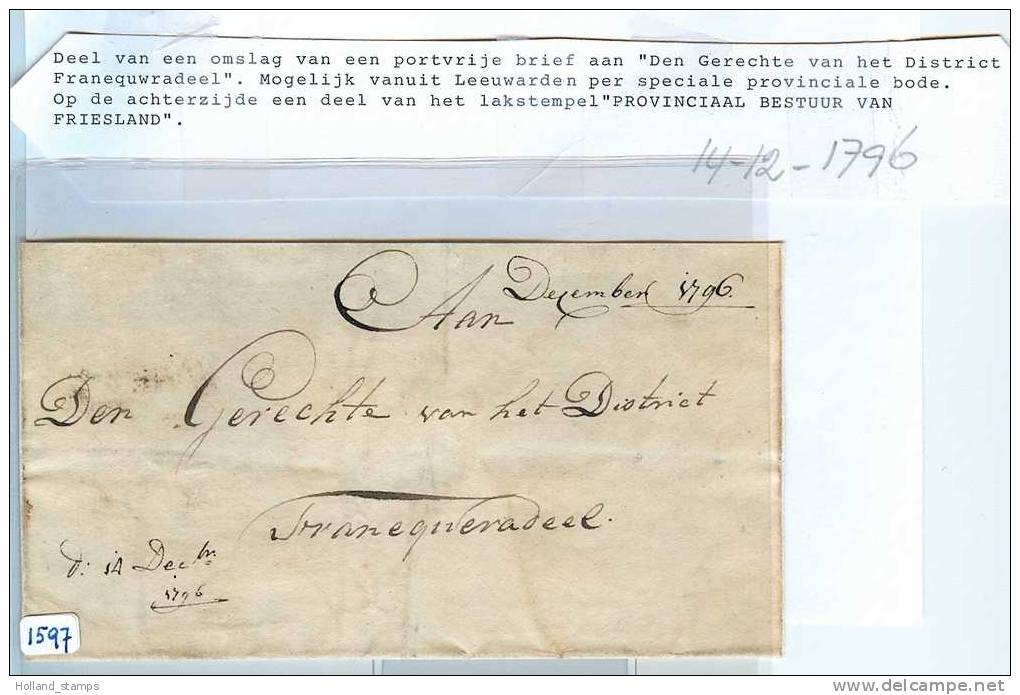 Deel van een omslag van een portvrije brief aan "Den Gerechte van het District
Franequwradeel". Mogelijk vanuit Leeuwarden per speciale provinciale bode.
Op de achterzijde een deel van het lakstempel"PROVINCIAAL BESTUUR VAN
FRIESLAND".
14-12-1796
December 1796.
Aan
Den Gerechte van het District
Franequeradeel.
d: 14 Decbr.
1796
1597
Holland_stamps
www.delcampe.net